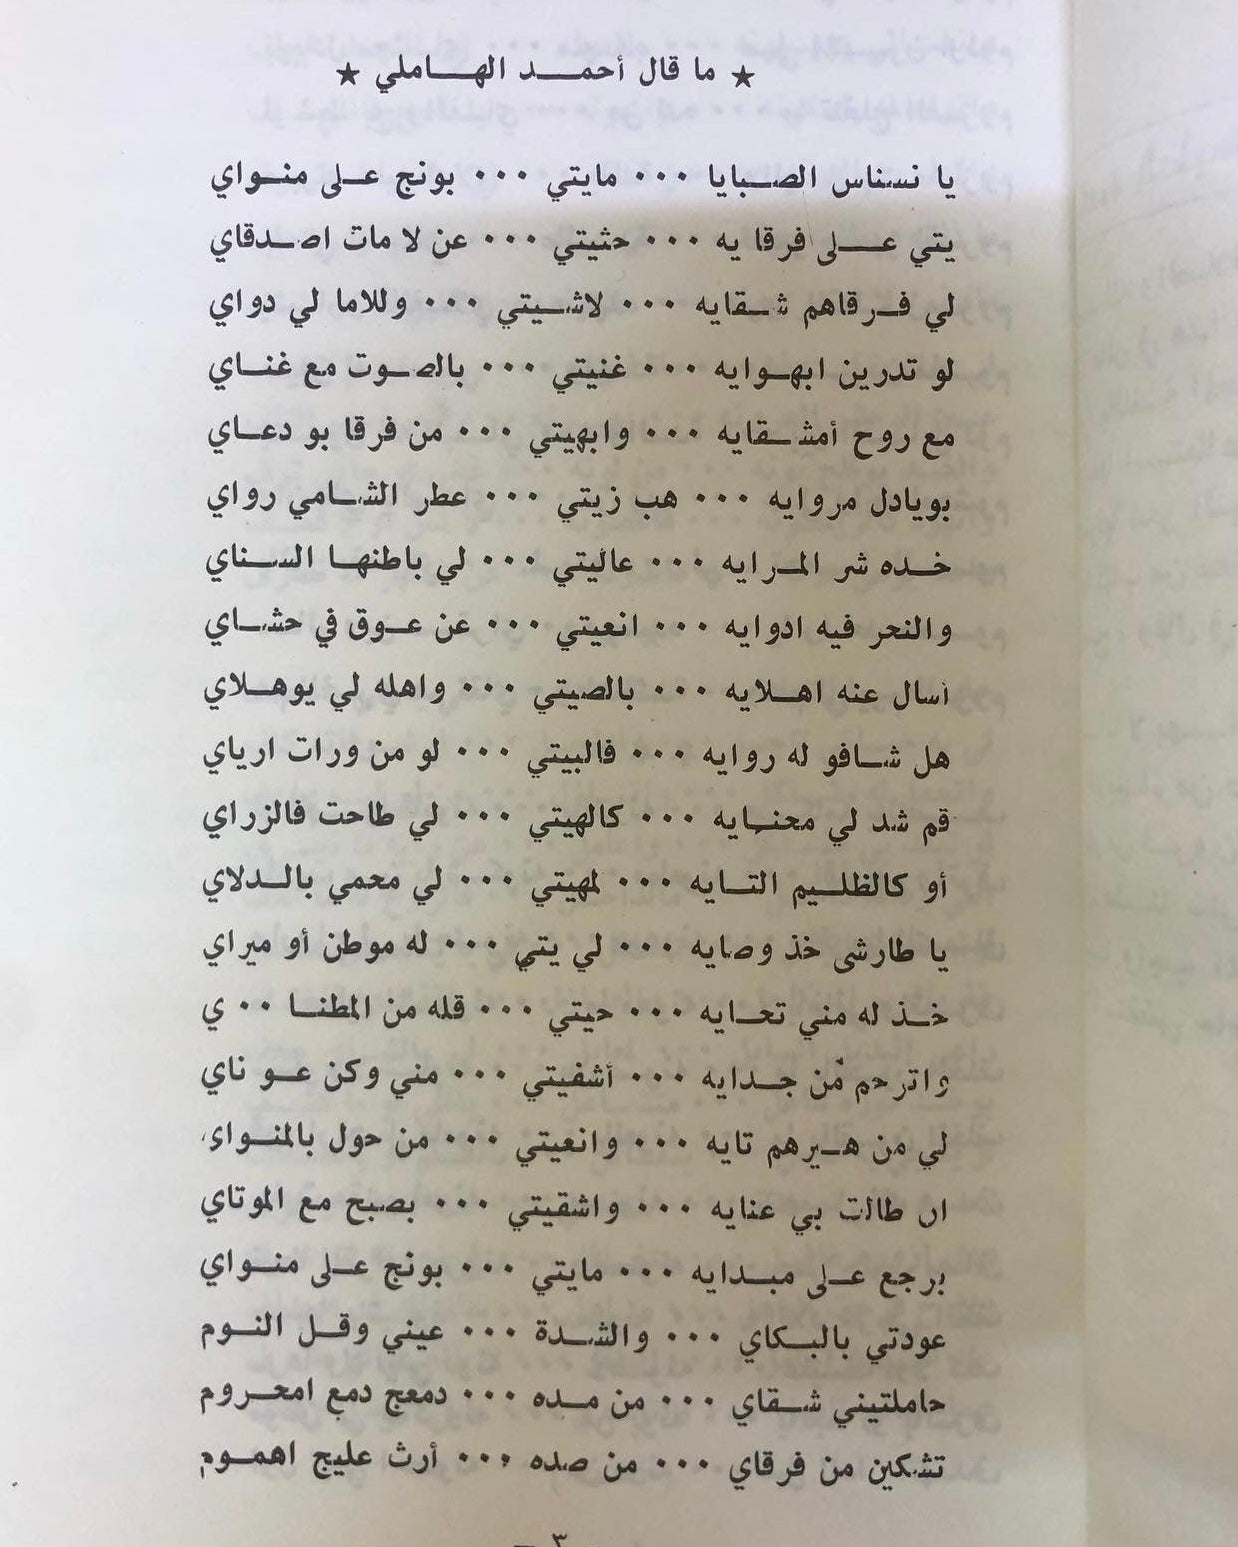 ★ ما قال أحمد الهاملي ★
يا نسناس الصبايا ••• مايتي ••• بونج على منواي
يتي على فرقا يه ••• حثيتي ••• عن لا مات اصدقاي
لي فرقاهم شقايه ••• لاشيتي ••• وللاما لي دواي
لو تدرين ابهوايه ••• غنيتي ••• بالصوت مع غناي
مع روح أمشقايه ••• وابهيتي ••• من فرقا بو دعاي
بويادل مروايه ••• هب زيتي ••• عطر الشامي رواي
خده شر المرايه ••• عاليتي ••• لي باطنها السناي
والنحر فيه ادوايه ••• انعيتي ••• عن عوق في حشاي
أسال عنه اهلايه ••• بالصيتي ••• واهله لي يوهلاي
هل شافو له روايه ••• فالبيتي ••• لو من ورات ارياي
قم شد لي محنايه ••• كالهيتي ••• لي طاحت فالزراي
أو كالظليم التايه ••• لمهيتي ••• لي محمي بالدلاي
يا طارشى خذ وصايه ••• لي يتي ••• له موطن أو ميراي
خذ له مني تحايه ••• حيتي ••• قله من المطنا •• ي
واترحم من جدايه ••• أشفيتي ••• مني وكن عو ناي
لي من هيرهم تايه ••• وانعيتي ••• من حول بالمنواي
ان طالت بي عنايه ••• واشقيتي ••• بصبح مع الموتاي
برجع على مبدايه ••• مايتي ••• بونج على منواي
عودتي بالبكاي ••• والشدة ••• عيني وقل النوم
حاملتيني شقاي ••• من مده ••• دمعج دمع امحروم
تشكين من فرقاي ••• من صده ••• أرث عليج اهموم
— ٣